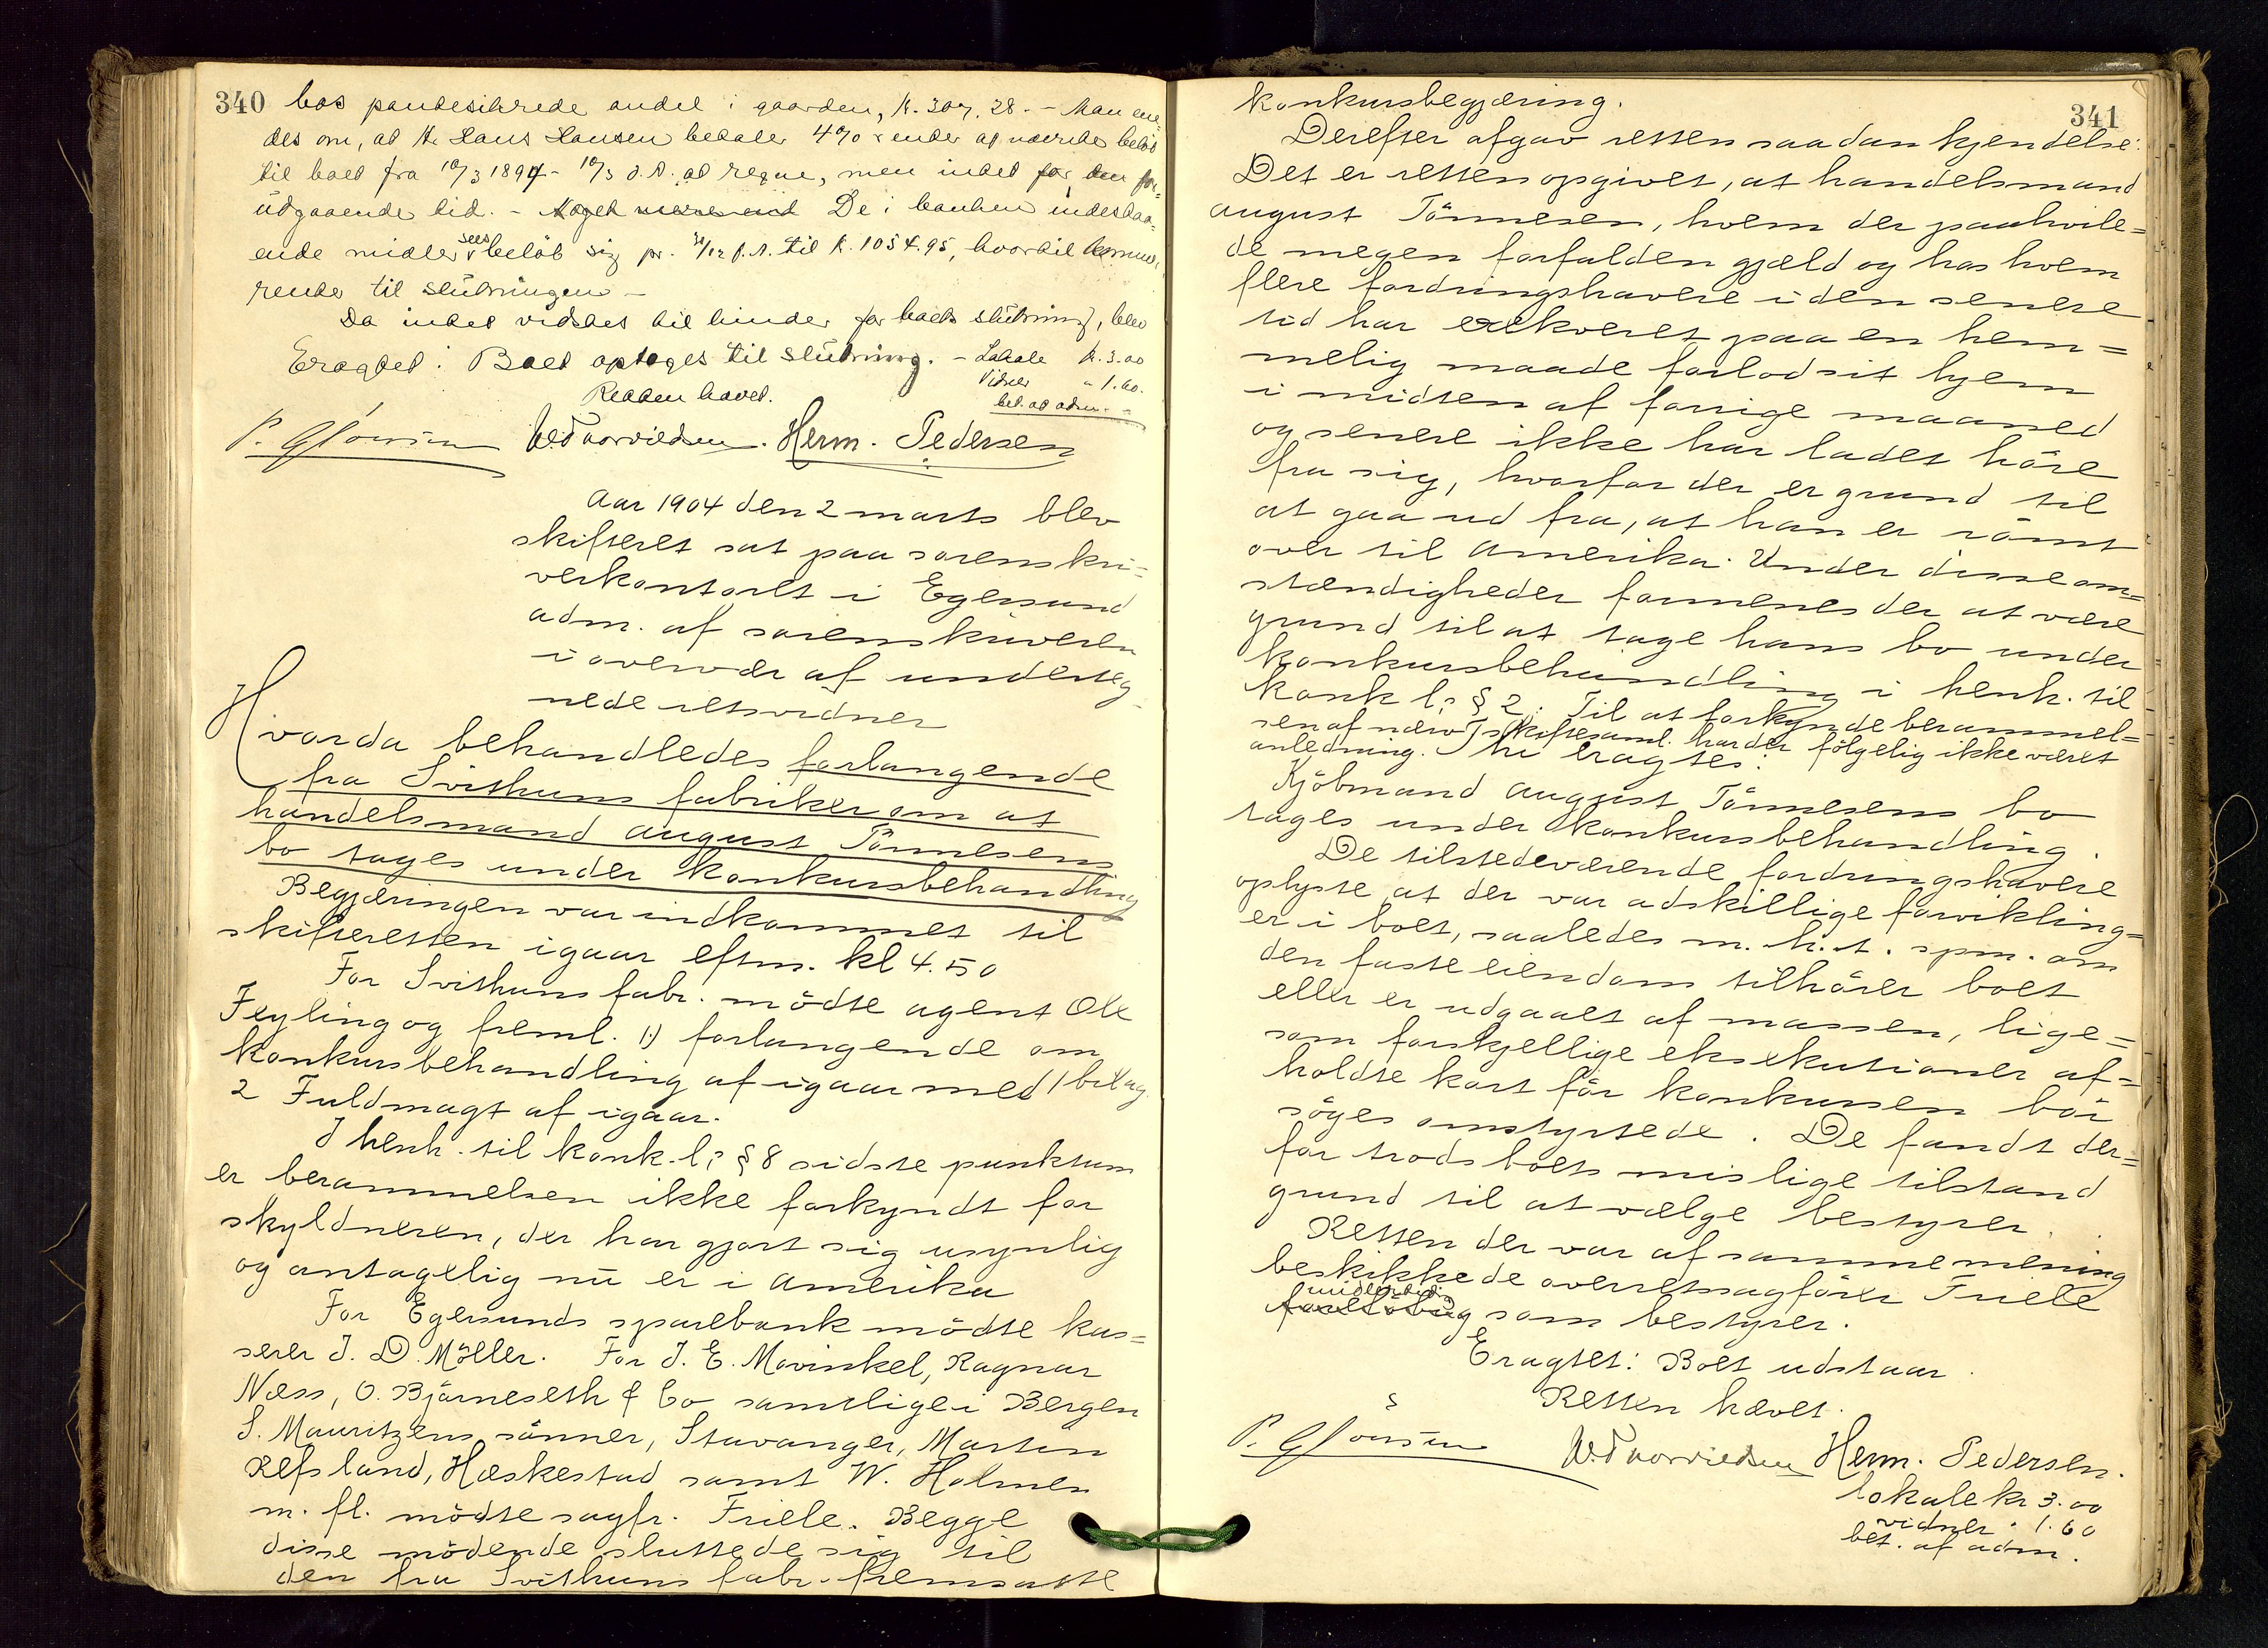 340
bos pantesikrede andel i gaarden, k. 307.28. - Man ene-
des om, at Hr Hans Hansen betaler 4% renter af nævnte beløb
til boet fra 10/3 1897 - 10/3 d.A. at regne, men intet for den for-
udgaaende tid. - Noget mere end De i banken indestaa-
ende midler sees beløb sig pr. 31/12 f.A. til k. 1054.95, hvortil kommer
renter til slutningen -
Da intet vidstes til hinder for boets slutning, blev
Eragtet: Boet optages til slutning. - Lokale k. 3.00
Vidner " 1.60.
Retten hævet.
bet. af adm.
P. G. Jonsen W. Thorvildsen. Herm. Pedersen
Aar 1904 den 2 marts blev
skifteret sat paa sorenskri=
verkontoret i Egersund
adm. af sorenskriveren
i overvær af underteg-
nede retsvidner
Hvorda behandledes forlangende
fra Svithuns fabriker om at
handelsmand August Tönnesens
bo tages under konkursbehandling
Begjæringen var indkommet til
skifteretten igaar eftm. kl 4.50
For Svithuns fabr. mödte agent Ole
Feyling og freml. 1) forlangende om
konkursbehandling af igaar med 1 bilag.
2 Fuldmagt af igaar.
I henh. til konk.l; § 8 sidste punktum
er berammelsen ikke forkyndt for
skyldneren, der har gjort sig usynlig
og antagelig nu er i Amerika
For Egersunds sparebank mödte kas=
serer J. D. Möller. For J. E. Mowinkel, Ragnar
Næss, O. Bjørneseth & Co samtlige i Bergen
S. Mauritzens sönner, Stavanger, Martin
Refsland, Hæskestad samt W. Holmen
m. fl. mödte sagfr. Friele. Begge
disse mödende sluttede sig til
den fra Svithuns fabr. fremsatte
341
konkursbegjæring.
Derefter afgav retten saadan kjendelse:
Det er retten opgivet, at handelsmand
August Tönnesen, hvem der paahvile=
de megen forfalden gjæld og hos hvem
flere fordringshavere i den senere
tid har exekveret paa en hem=
melig maade forlod sit hjem
i midten af forrige maaned
og senere ikke har ladet höre
fra sig, hvorfor der er grund til
at gaa ud fra, at han er römt
over til Amerika. Under disse om=
stændigheder formenes der at være
grund til at tage hans bo under
konkursbehandling i henh. til
konk l; § 2. Til at forkynde berammel=
sen af nærv. skiftesaml. har der fölgelig ikke været
anledning. Thi eragtes:
Kjöbmand August Tönnesens bo
tages under konkursbehandling.
De tilstedeværende fordringshavere
oplyste at der var adskillige forvikling=
er i boet, saaledes m. h. t. spm. om
den faste eiendom tilhörer boet
eller er udgaaet af massen, lige=
som forskjellige eksekutioner af=
holdte kort för konkursen bör
söges omstyrtede. De fandt der=
for trods boets mislige tilstand
grund til at vælge bestyrer.
Retten der var af samme mening
beskikkede overretssagförer Friele
midlertidig
foreløbig som bestyrer.
Eragtet: Boet udstaar.
Retten hævet.
P. G. Jonsen W. Thorvildsen Herm. Pedersen.
lokale kr 3.00
vidner " 1.60
bet. af adm.